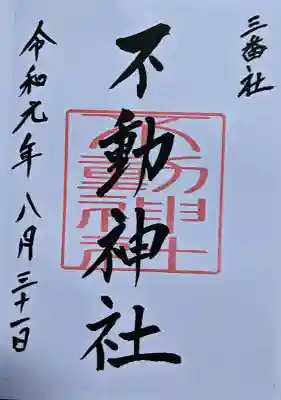 三番社
不動神社
令和元年八月三十一日
不動神社